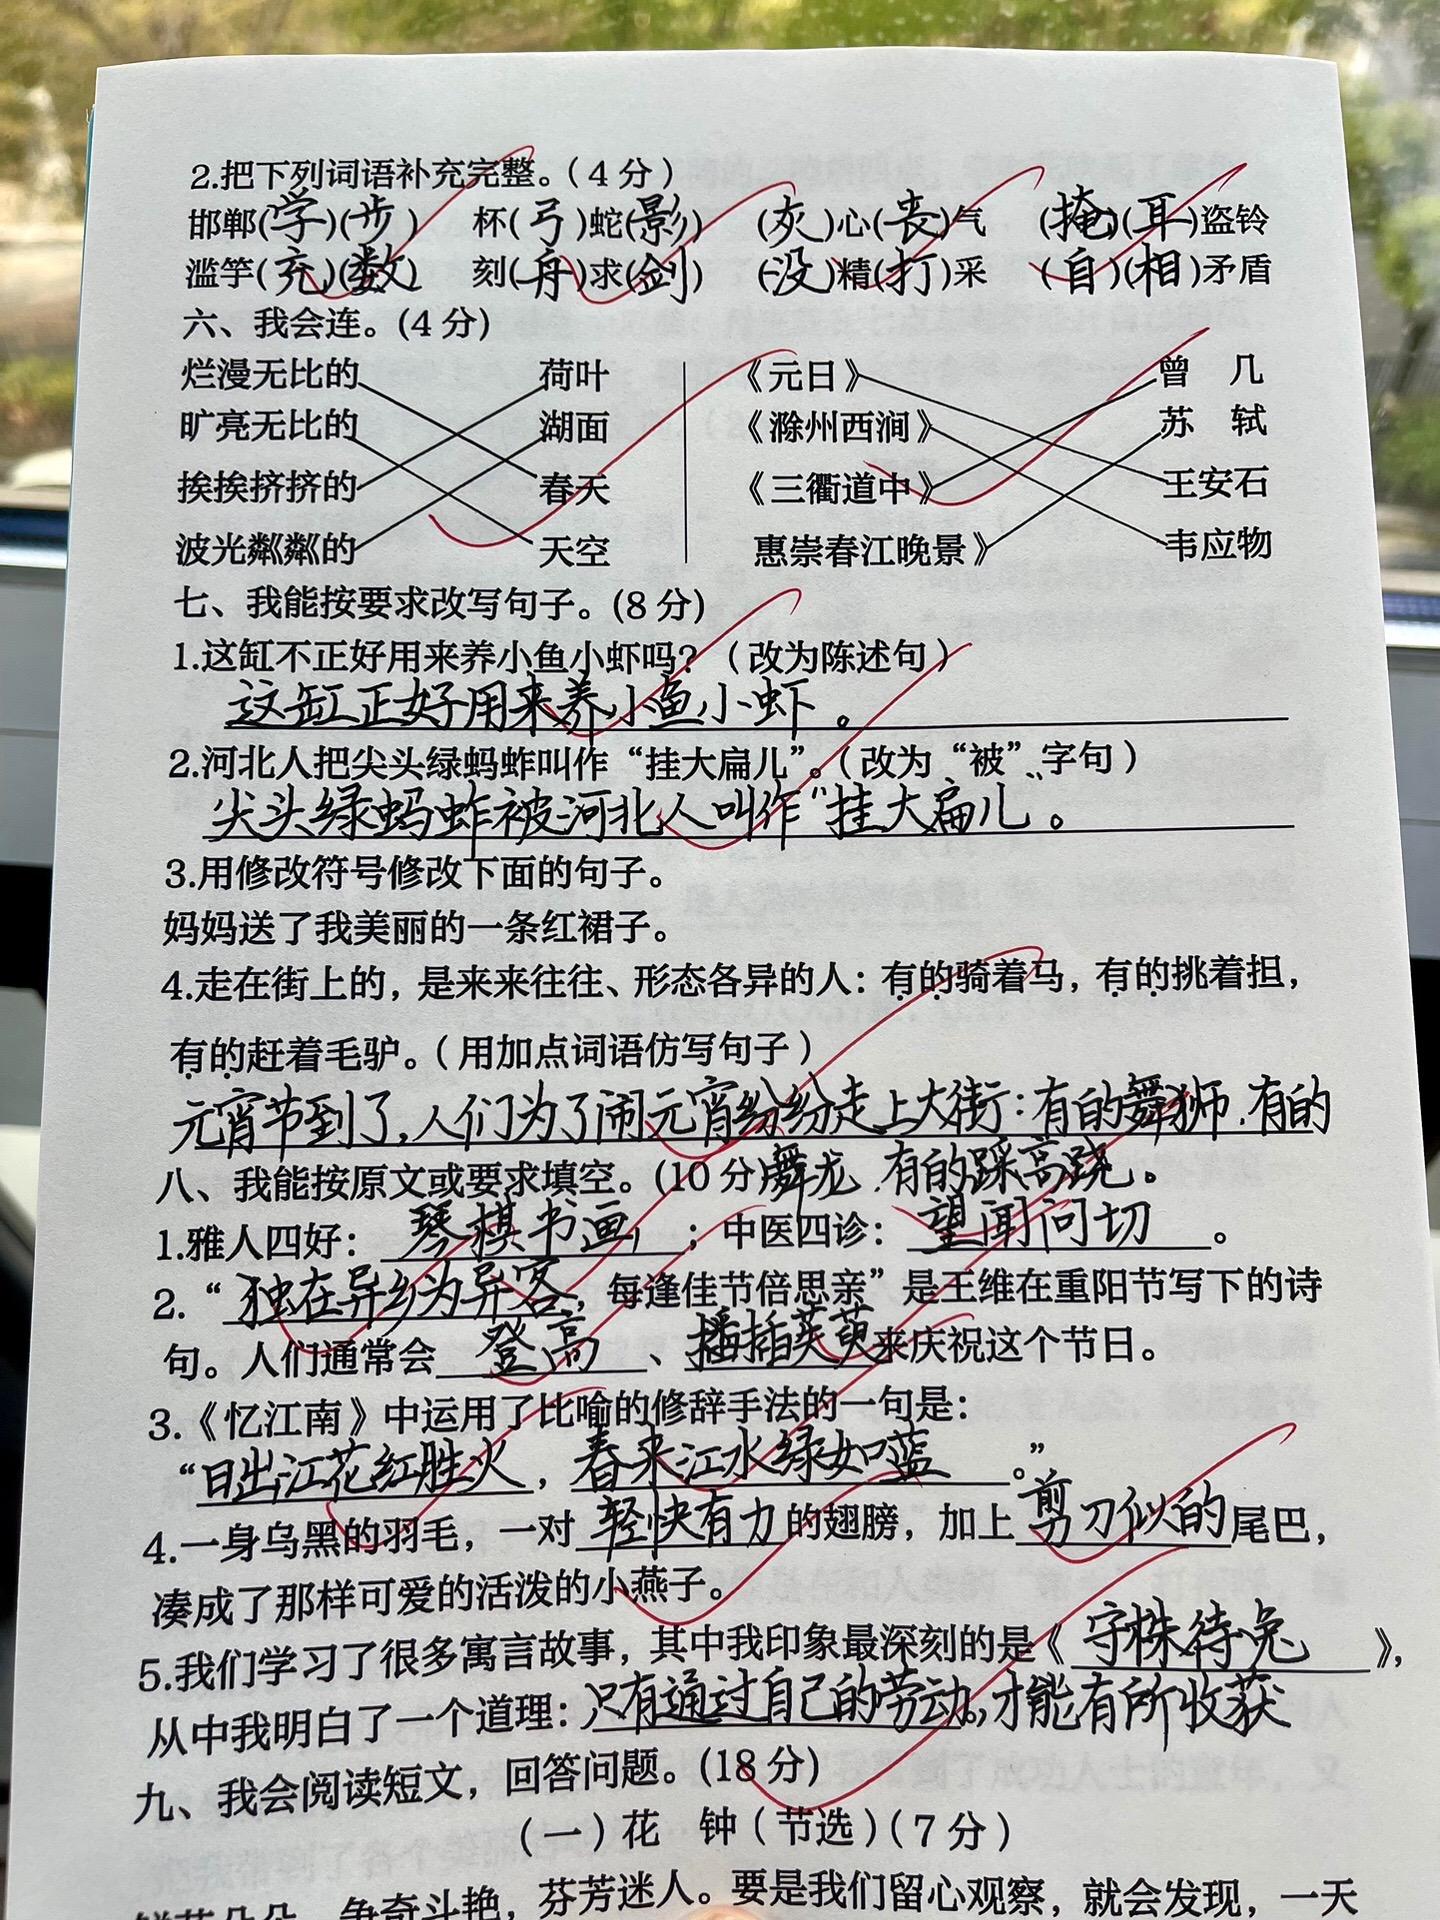 2.把下列词语补充完整。(4分)
邯郸(学)(步) 杯(弓)蛇(影) (灰)心(丧)气 (掩)(耳)盗铃
滥竽(充)(数) 刻(舟)求(剑) (没)精(打)采 (自)(相)矛盾
六、我会连。(4分)
烂漫无比的 荷叶 《元日》 曾 几
旷亮无比的 湖面 《滁州西涧》 苏 轼
挨挨挤挤的 春天 《三衢道中》 王安石
波光粼粼的 天空 惠崇春江晚景》 韦应物
七、我能按要求改写句子。(8分)
1.这缸不正好用来养小鱼小虾吗?(改为陈述句)
这缸正好用来养小鱼小虾。
2.河北人把尖头绿蚂蚱叫作“挂大扁儿”。(改为“被”字句)
尖头绿蚂蚱被河北人叫作“挂大扁儿。
3.用修改符号修改下面的句子。
妈妈送了我美丽的一条红裙子。
4.走在街上的,是来来往往、形态各异的人:有的骑着马,有的挑着担,
有的赶着毛驴。(用加点词语仿写句子)
元宵节到了,人们为了闹元宵纷纷走上大街:有的舞狮,有的
舞龙,有的踩高跷。
八、我能按原文或要求填空。(10分
1.雅人四好: 琴棋书画 ;中医四诊: 望闻问切 。
2.“独在异乡为异客,每逢佳节倍思亲”是王维在重阳节写下的诗
句。人们通常会 登高 、 插茱萸来庆祝这个节日。
3.《忆江南》中运用了比喻的修辞手法的一句是:
“日出江花红胜火,春来江水绿如蓝 。”
4.一身乌黑的羽毛,一对 轻快有力的翅膀,加上剪刀似的尾巴,
凑成了那样可爱的活泼的小燕子。
5.我们学习了很多寓言故事,其中我印象最深刻的是《 守株待兔 》,
从中我明白了一个道理:只有通过自己的劳动,才能有所收获
九、我会阅读短文,回答问题。(18分)
(一)花 钟(节选)(7分)
鲜花朵朵,争奇斗艳,芬芳迷人。要是我们留心观察,就会发现,一天